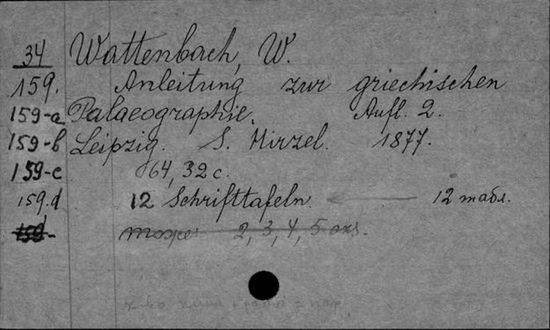 34 Wattenbach, W.
159. Anleitung zur griechischen
159-a Palaeographie. Aufl. 2.
159-b Leipzig. S. Hirzel. 1877.
159-c 64, 32 c.
159.d 12 Schrifttafeln 12 табл.
159. тоже 2, 3, 4, 5 экз.